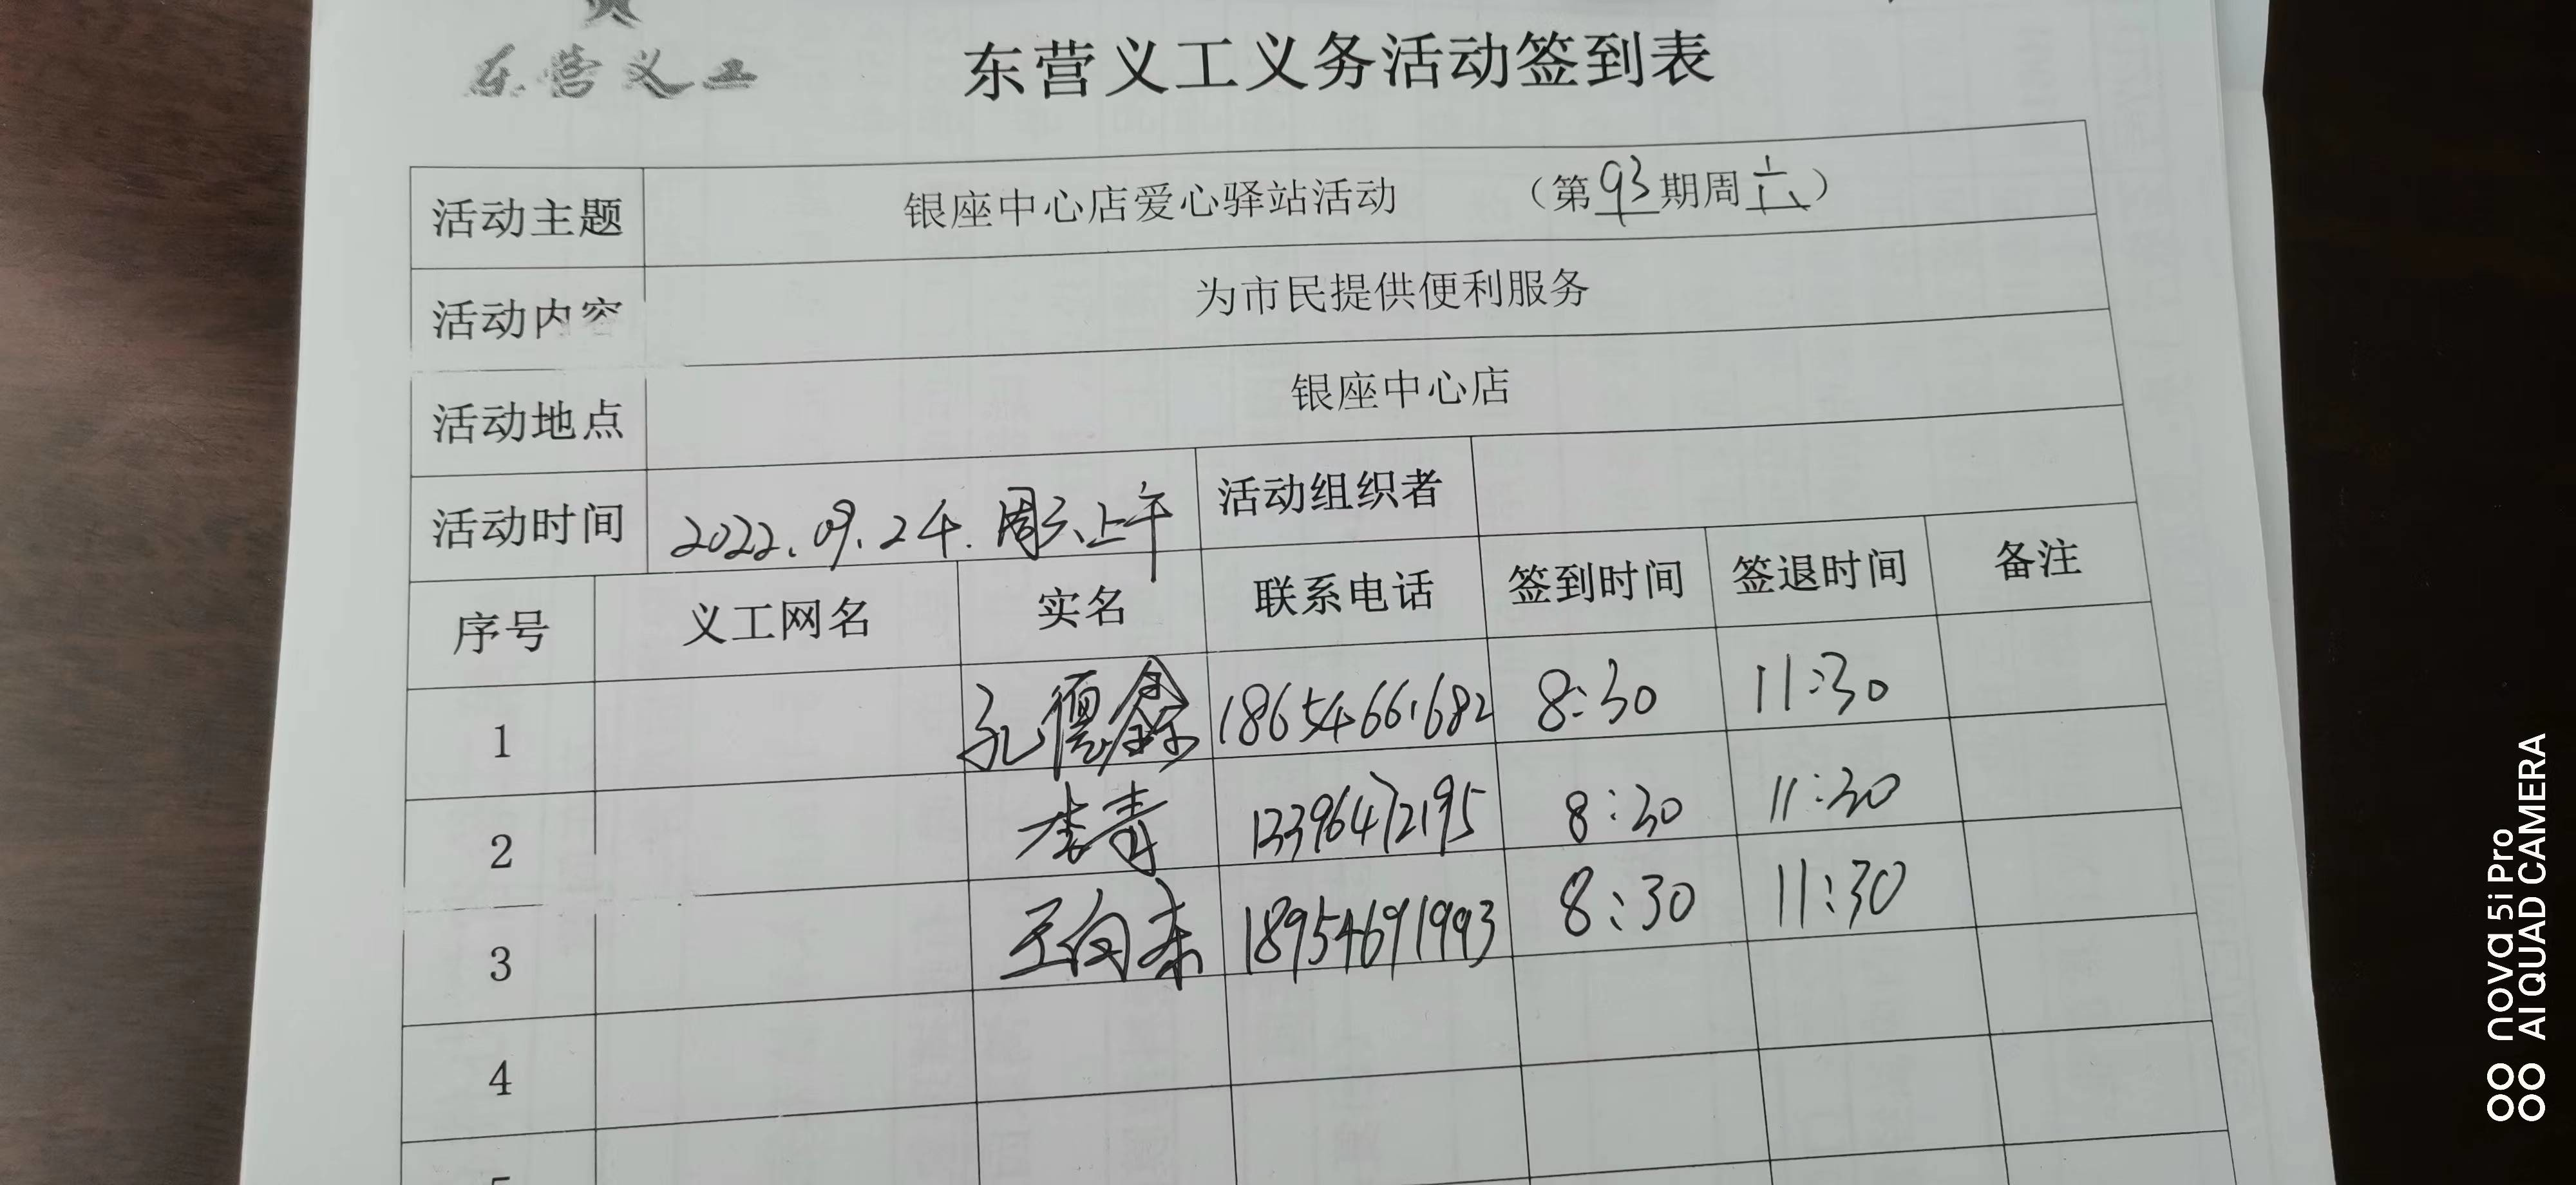 东营义工
东营义工义务活动签到表
活动主题 银座中心店爱心驿站活动 （第93期周六）
活动内容 为市民提供便利服务
活动地点 银座中心店
活动时间 2022.09.24.周六上午 活动组织者
序号 义工网名 实名 联系电话 签到时间 签退时间 备注
1 孔德鑫 18654661682 8:30 11:30
2 李青 13396472195 8:30 11:30
3 王向东 18954691993 8:30 11:30
4
nova 5i Pro
AI QUAD CAMERA